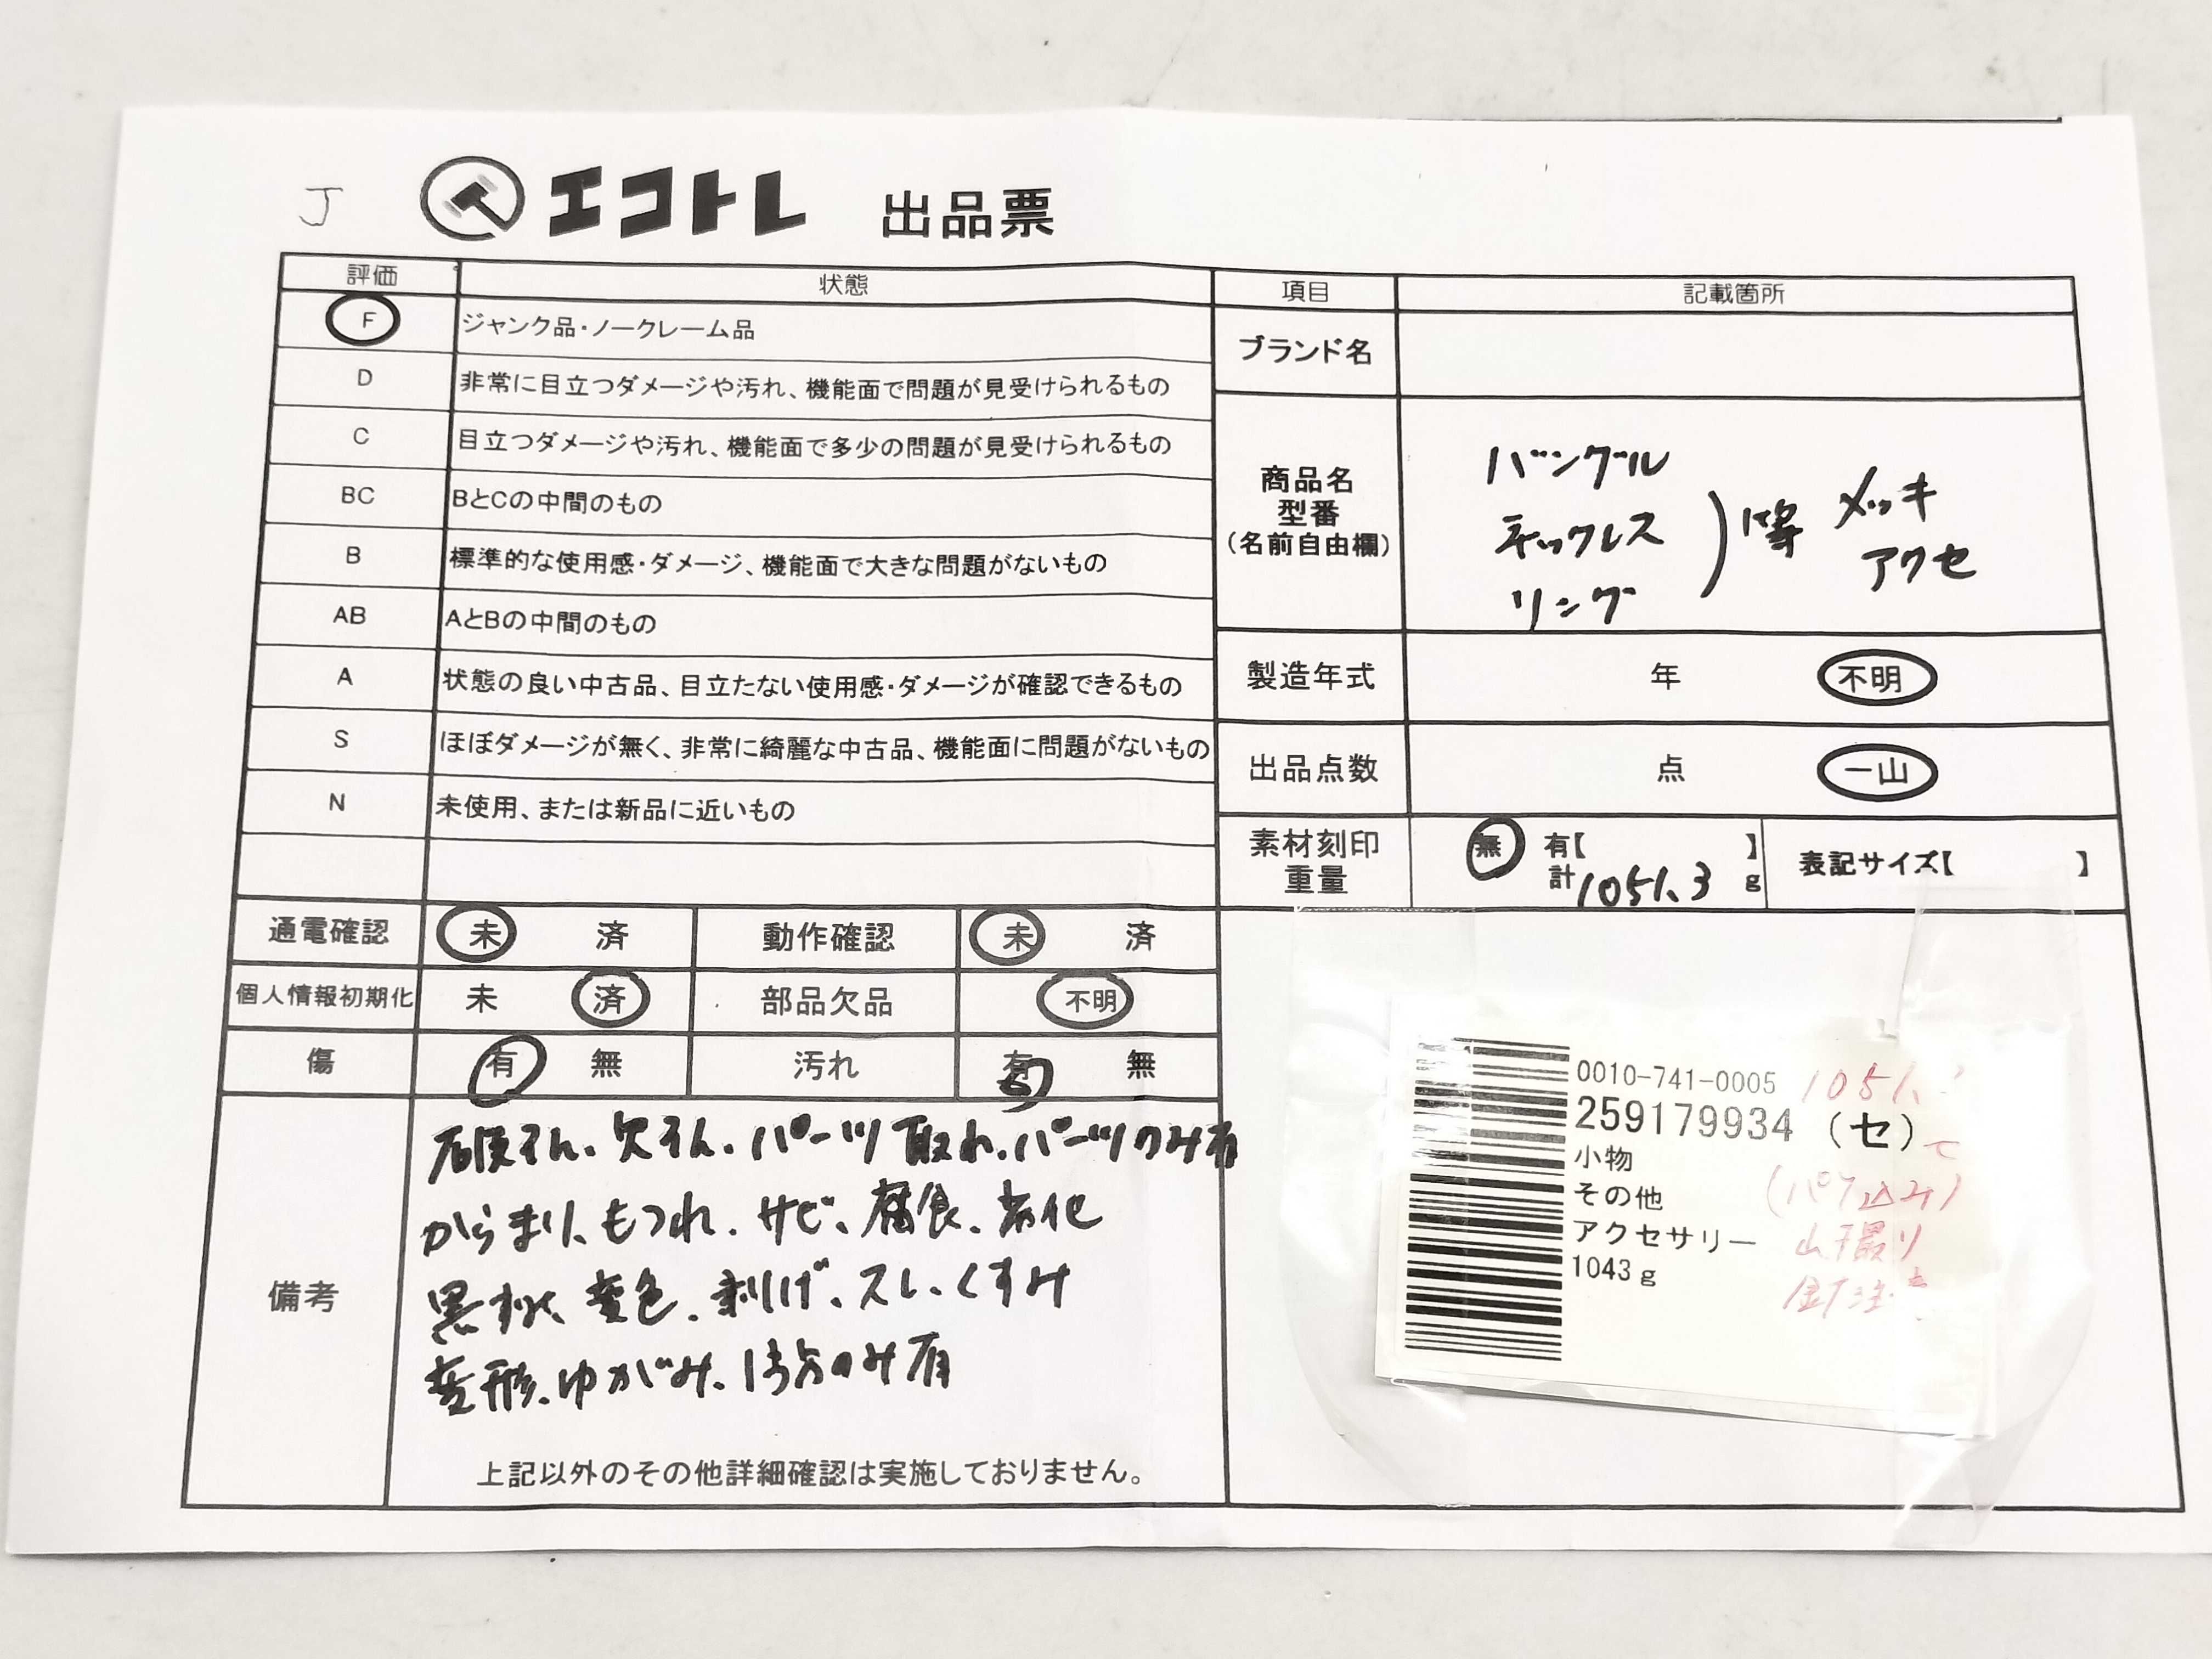 J エコトレ 出品票
評価 状態
F ジャンク品・ノークレーム品
D 非常に目立つダメージや汚れ、機能面で問題が見受けられるもの
C 目立つダメージや汚れ、機能面で多少の問題が見受けられるもの
BC BとCの中間のもの
B 標準的な使用感・ダメージ、機能面で大きな問題がないもの
AB AとBの中間のもの
A 状態の良い中古品、目立たない使用感・ダメージが確認できるもの
S ほぼダメージが無く、非常に綺麗な中古品、機能面に問題がないもの
N 未使用、または新品に近いもの
通電確認 未 済 動作確認 未 済
個人情報初期化 未 済 部品欠品 不明
傷 有 無 汚れ 有 無
備考
石破そん、欠そん、パーツ取れ、パーツのみ有
からまり、もつれ、サビ、腐食、劣化
黒ずみ、変色、剥げ、スレ、くすみ
変形、ゆがみ、1部分のみ有
上記以外のその他詳細確認は実施しておりません。
項目 記載箇所
ブランド名
商品名
型番
(名前自由欄)
バングル
ネックレス
リング
等 メッキ
アクセ
製造年式 年 不明
出品点数 点 一山
素材刻印
重量
無 有【 】
計1051.3 g
表記サイズ【 】
0010-741-0005 1051.
259179934 (セ)
小物
その他
アクセサリー
1043g